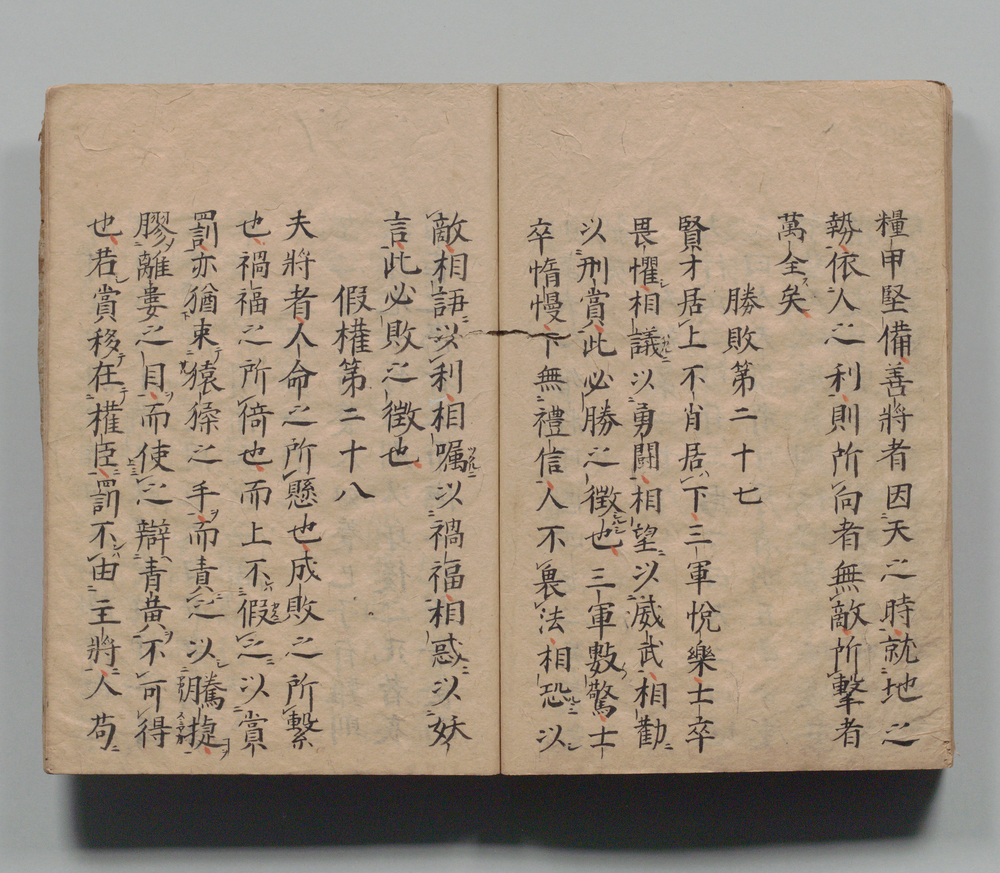 糧甲堅備善將者因天之時就地之
勢依人之利則所向者無敵所擊者
萬全矣
勝敗第二十七
賢才居上不肖居下三軍悅樂士卒
畏懼相議以勇鬪相望以威武相勸
以刑賞此必勝之徵也三軍數驚士
卒惰慢下無禮信人不畏法相恐以
敵相語以利相囑以禍福相惑以妖
言此必敗之徵也
假權第二十八
夫將者人命之所懸也成敗之所繫
也禍福之所倚也而上不假之以賞
罰亦猶束猿猱之手而責之以騰捷
膠離婁之目而使之辯青黃不可得
也若賞移在權臣罰不由主將人苟